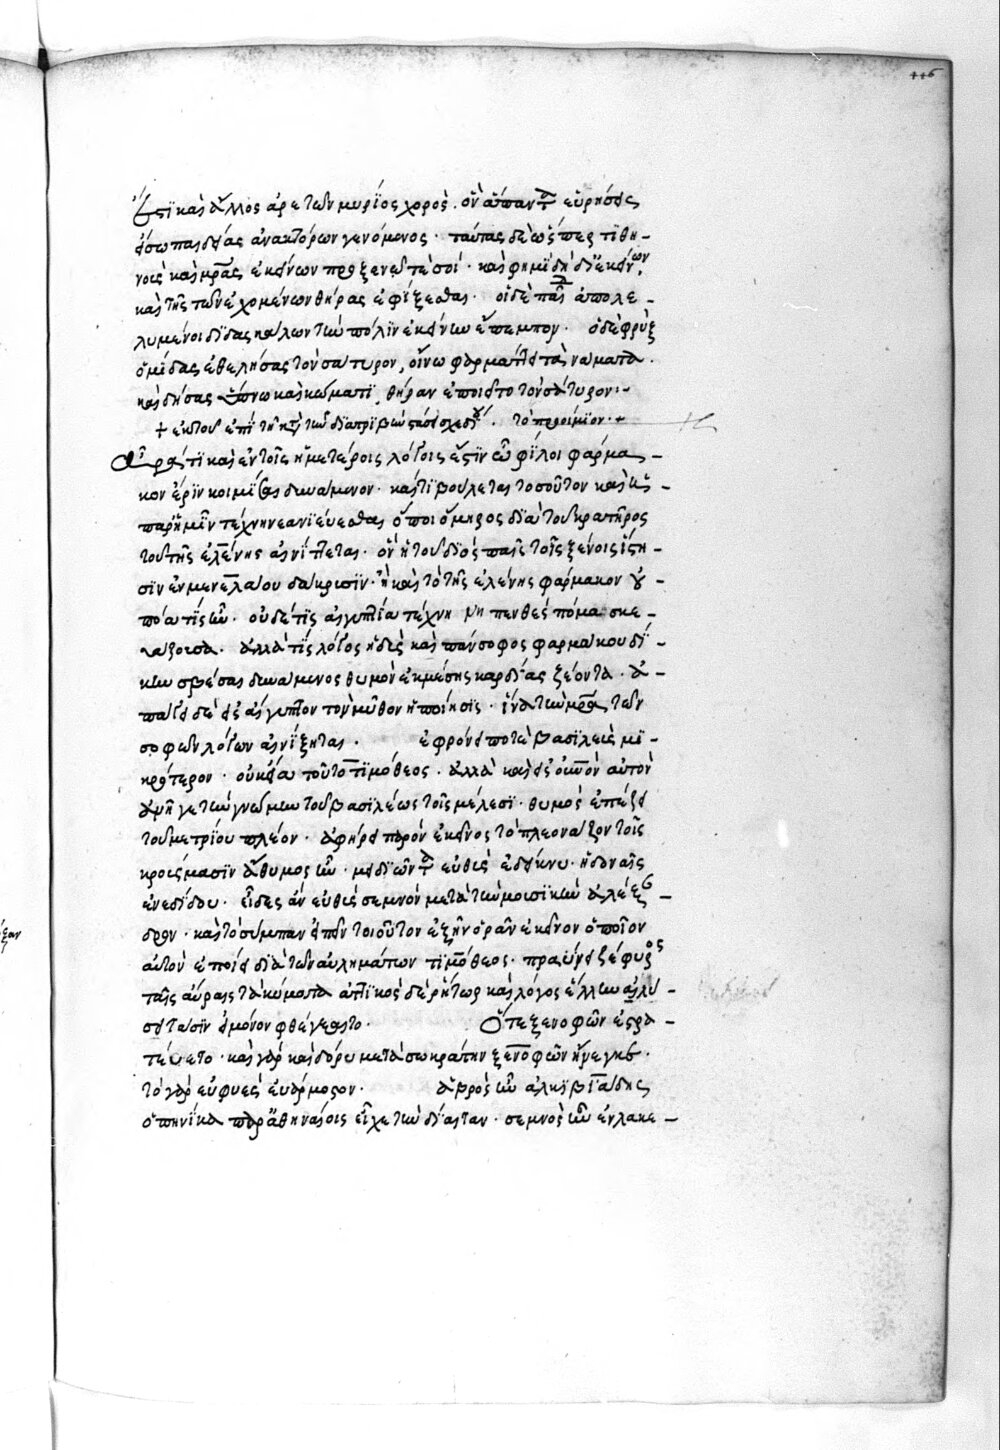 116
ἔστι καὶ ἄλλος ἀρετῶν μυρίος χορός. ὃν ἅπαντα εὑρήσεις
εἴσω παιδείας ἀνακτόρων γενόμενος. ταύτας δὲ ὥσπερ τιθη-
νοὶς καὶ μρας ἐκείνων προξενεῖτέ σοι. καὶ φημὶ δὴ δι' ἐκείνων
καὶ τῆς τῶν ἐχομένων θήρας ἐφίξεσθαι. οἱ δὲ παῖ ἀπολε-
λυμένοι δᾷδας καλων τὼ πόλιν ἐκείνω ἔπεμπον. ὁ δὲ φρὺξ
ὁ μίδας ἐθελήσας τὸν σάτυρον, οἴνω φαρμάττει τὰ νάματα.
καὶ δήσας ὕπνω καὶ κώματι, θήραν ἐποιεῖτο τὸν σάτυρον:-
+ ἐκ τοῦ ἐπὶ τῆ τῶν διατριβῶν. τὸ προοίμιον. +
Ἆρά τι καὶ ἐν τοῖς ἡμετέροις λόγοις ἐστὶν ὦ φίλοι φάρμα-
κον ἔριν κοιμίσαι δυνάμενον. καί τι βούλεται τοσοῦτον καὶ ἡ
παρ' ἡμῖν τέχνη νεανιεύεσθαι ὅποι ὅμηρος διὰ τοῦ κρατῆρος
τοῦ τῆς ἑλένης αἰνίττεται. ὃν ἡ τοῦ διὸς παῖς τοῖς ξένοις ἵστη-
σιν ἐν μενελάου δακρύσιν. ἢ καὶ τὸ τῆς ἑλένης φάρμακον οὐ
πόα τις ὦν. οὐδέ τις αἰγυπτία τέχνη νηπενθὲς πόμα σκε-
υάζουσα. ἀλλά τις λόγος ἡδὺς καὶ πάνσοφος φαρμάκου δί-
κην σβέσαι δυνάμενος θυμὸν ἐκ μέσης καρδίας ζέοντα. ἀ-
παίρει δὲ εἰς αἴγυπτον τὸν μῦθον ἡ ποίησις. ἵνα τὼ μρα τῶν
σοφῶν λόγων αἰνίξηται. ἐφρόνει ποτὲ βασιλεὺς μι-
κρότερον. οὐκ εἴα τοῦτο τιμόθεος. ἀλλὰ καὶ εἰς ὄγκον αὐτὸν
ἀνῆγε τὼ γνώμω τοῦ βασιλέως τοῖς μέλεσι. θυμὸς ἐπέζει
τοῦ μετρίου πλέον. ἀφῄρει παρὸν ἐκεῖνος τὸ πλεονάζον τοῖς
κρούμασιν ἄθυμος ὦ. μειδιῶντα εὐθὺς ἐδείκνυ. ἡδοναῖς
ἐνεδίδου. εἶδες ἂν εὐθὺς σεμνὸν μετὰ τὼ μουσικὼ ἀλέξ-
δρον. καὶ τὸ σύμπαν εἰπεῖν τοιοῦτον ἐξῆν ὁρᾶν ἐκεῖνον ὁποῖον
αὐτὸν ἐποίει διὰ τῶν αὐλημάτων τιμόθεος. πραΰνει ζέφυρος
ταῖς αὔραις τὰ κύματα ἀττικὸς δὲ ῥήτωρ καὶ λόγος ἕλλω
στάσιν εἰ μόνον φθέγξαιτο. ὅτε ξενοφῶν ἐστρα-
τεύετο. καὶ γὰρ καὶ δόρυ μετὰ σωκράτην ξενοφῶν ἤνεγκε.
τὸ γὰρ εὐφυὲς εὐάρμοστον. ἁβρὸς ὦν ἀλκιβιάδης
ὁπηνίκα παρ' ἀθηναίοις εἶχε τὼ δίαιταν. σεμνὸς ὦν ἐν λακε-